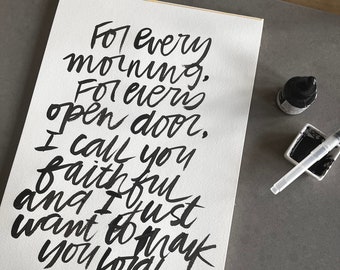 For every
morning,
Forever's
open door,
I call you
faithful
and I just
want to thank
you Lord